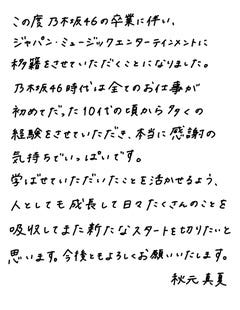 この度乃木坂46の卒業に伴い、
ジャパン・ミュージックエンターテインメントに
移籍をさせていただくことになりました。
乃木坂46時代は全てのお仕事が
初めてだった10代の頃から多くの
経験をさせていただき、本当に感謝の
気持ちでいっぱいです。
学ばせていただいたことを活かせるよう、
人としても成長して日々たくさんのことを
吸収してまた新たなスタートを切りたいと
思います。今後ともよろしくお願いいたします。
秋元真夏